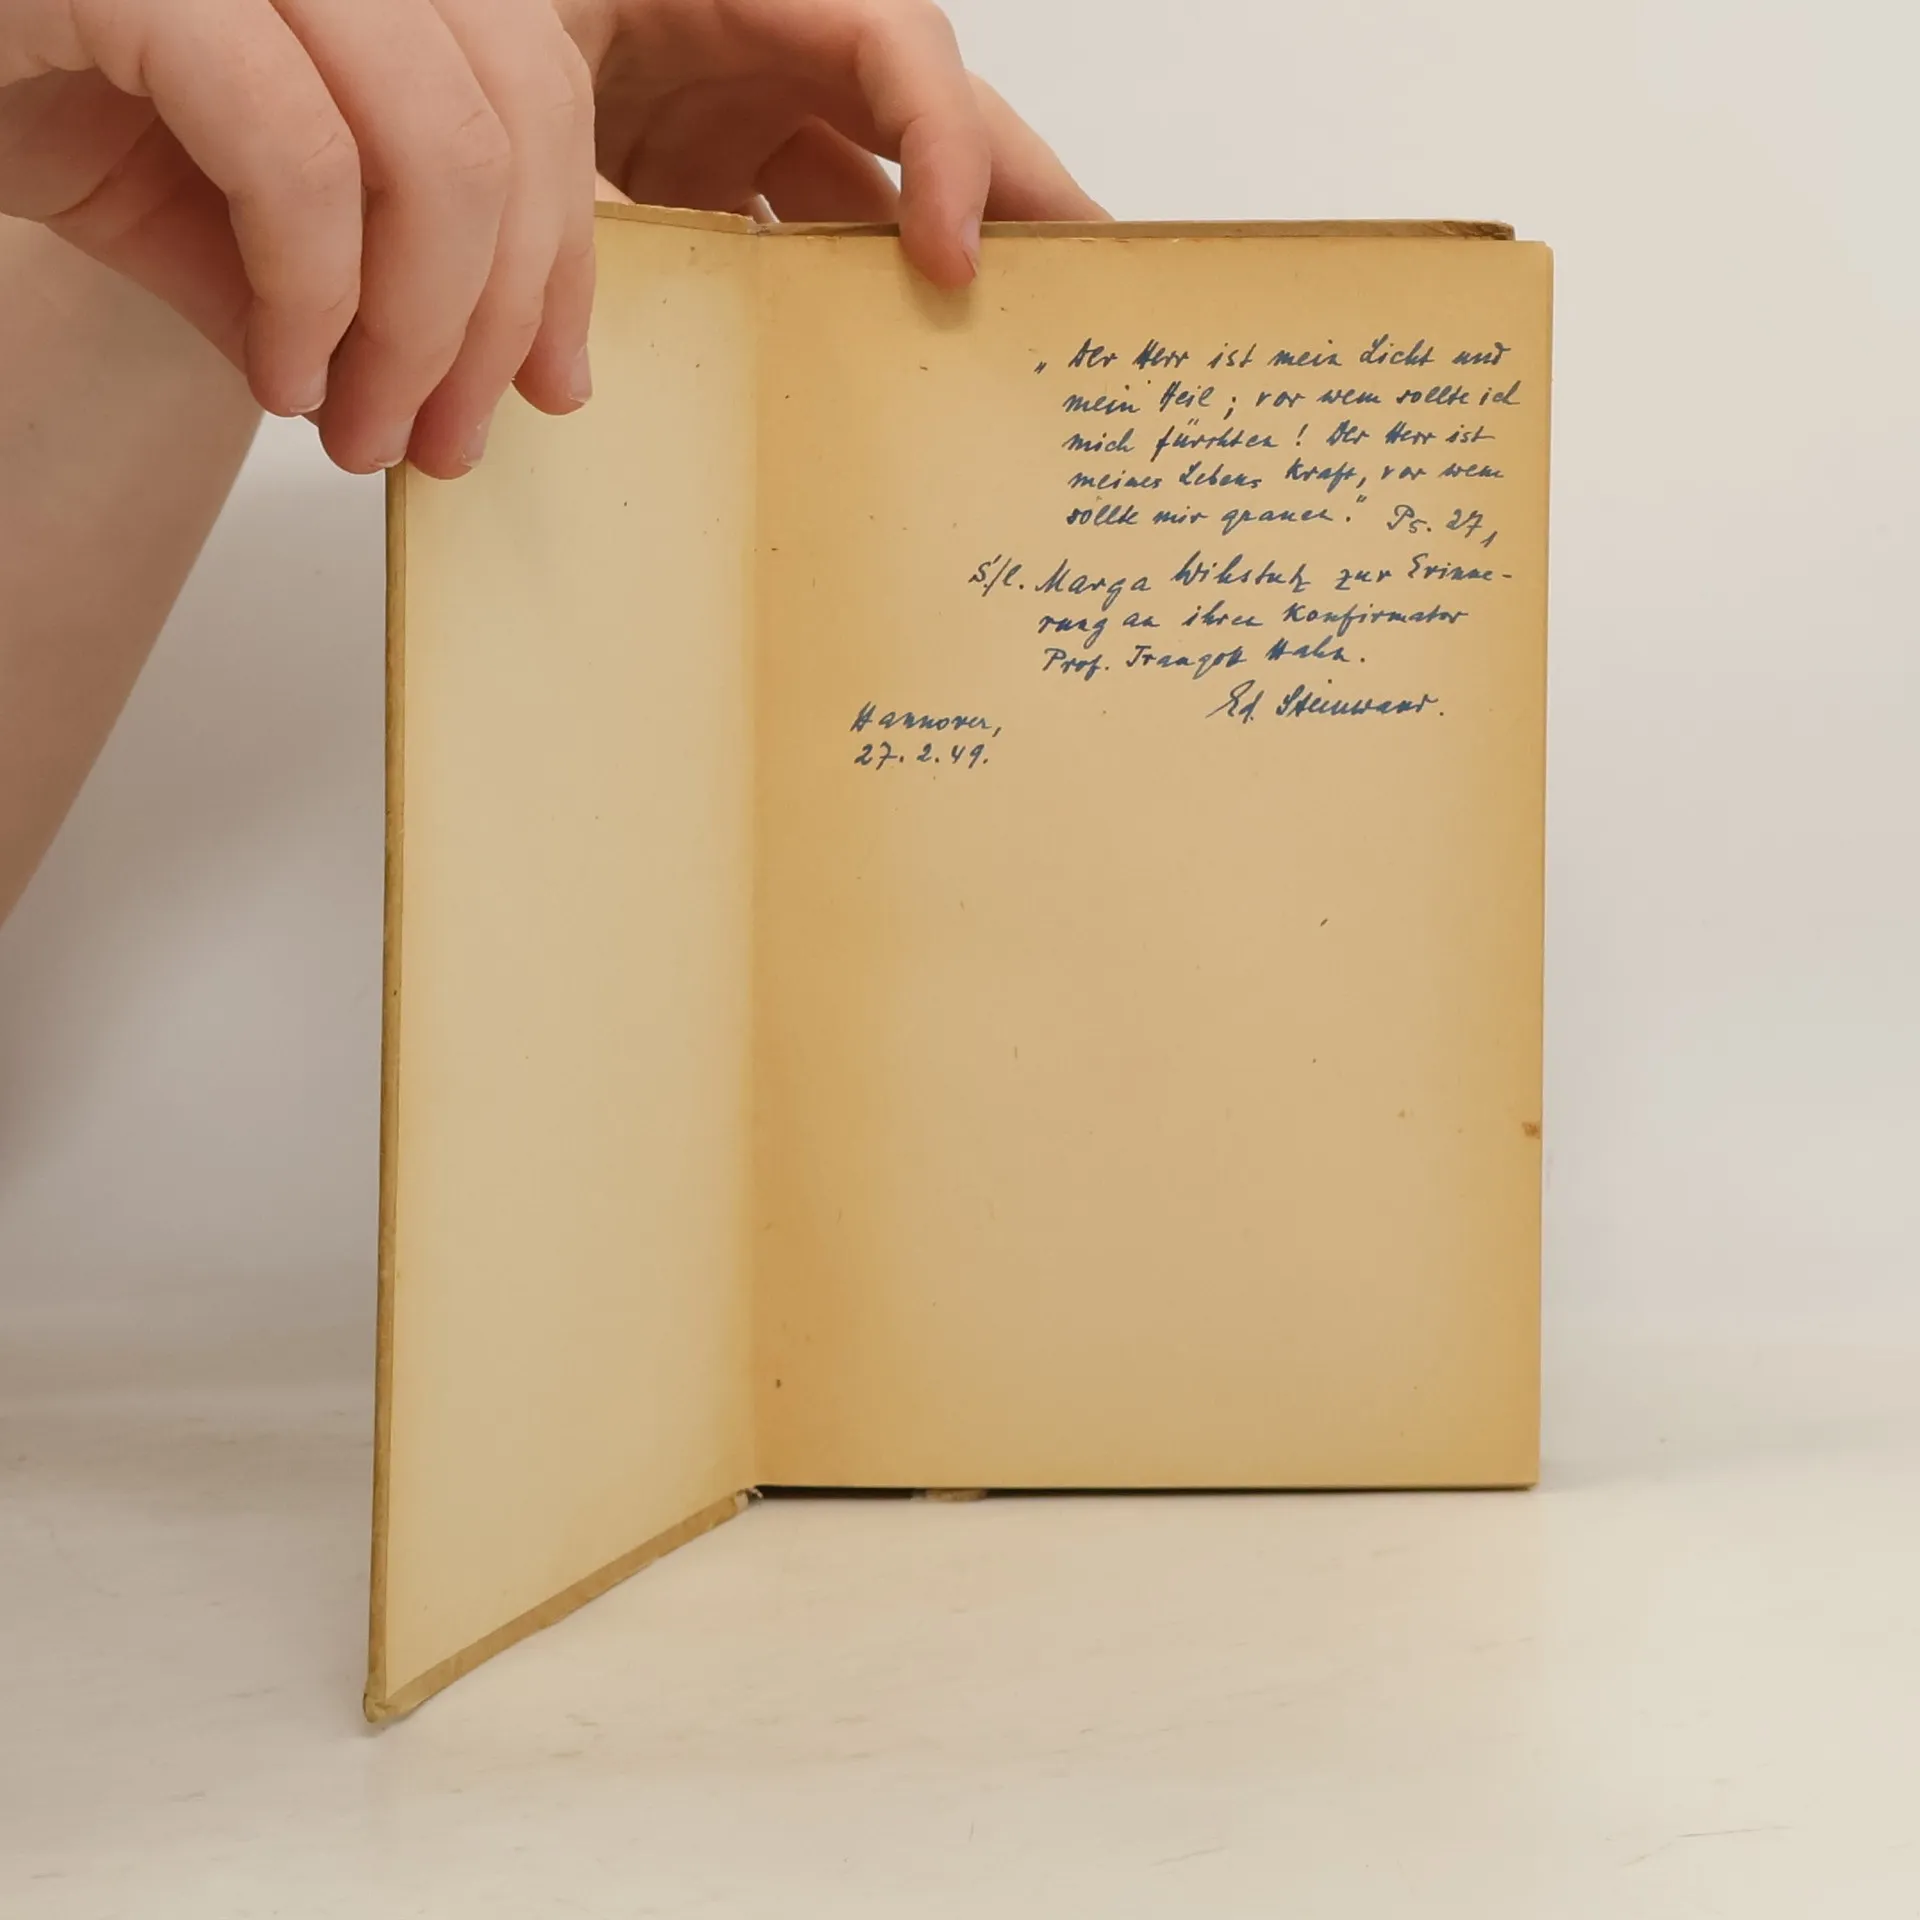 „Der Herr ist mein Licht und
mein Heil; vor wem sollte ich
mich fürchten! Der Herr ist
meines Lebens Kraft, vor wem
sollte mir grauen." Ps. 27,1
S./l. Marga zur Erinne-
rung an ihren Konfirmator
Prof. Traugott Hahn.
Ed. Steinwand.
Hannover,
27.2.49.